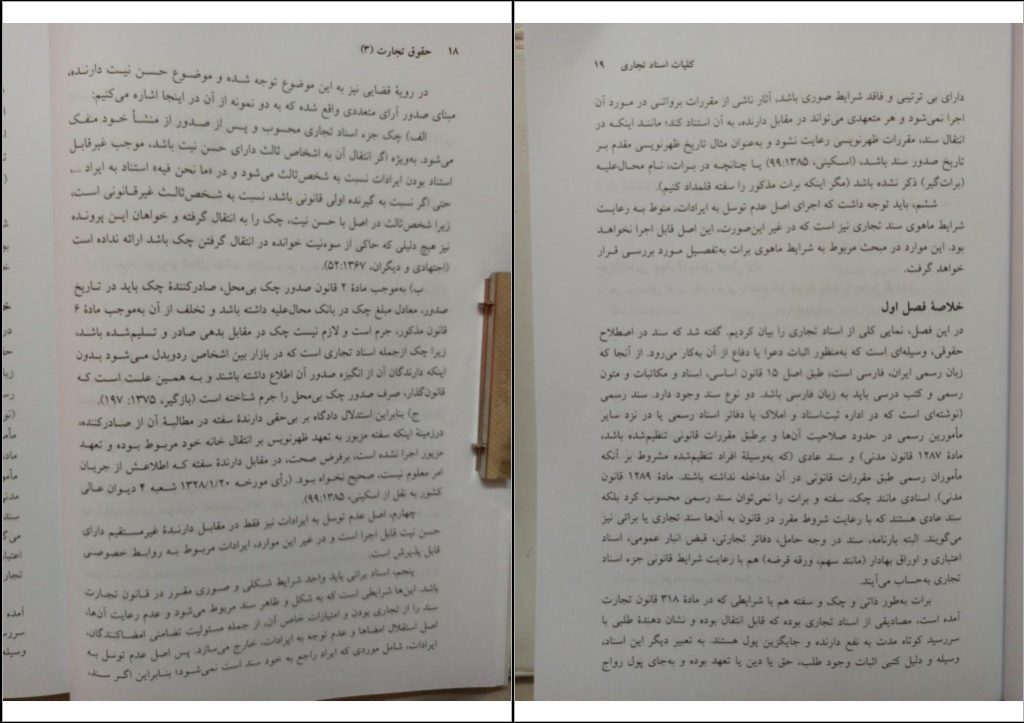 ۱۸ حقوق تجارت (۳)
در رویهٔ قضایی نیز به این موضوع توجه شده و موضوع حسن نیت دارنده،
مبنای صدور آرای متعددی واقع شده که به دو نمونه از آن در اینجا اشاره می‌کنیم:
الف) چک جزء اسناد تجاری محسوب و پس از صدور از منشأ خود منفک
می‌شود. به‌ویژه اگر انتقال آن به اشخاص ثالث دارای حسن نیت باشد، موجب غیرقابل
استناد بودن ایرادات نسبت به شخص‌ثالث می‌شود و در «ما نحن فیه» استناد به ایراد ...،
حتی اگر نسبت به گیرنده اولی قانونی باشد، نسبت به شخص‌ثالث غیرقانونی است،
زیرا شخص‌ثالث در اصل با حسن نیت، چک را به انتقال گرفته و خواهان این پرونده
نیز هیچ دلیلی که حاکی از سوءنیت خوانده در انتقال گرفتن چک باشد ارائه نداده است
(اجتهادی و دیگران، ۵۲:۱۳۶۷).
ب) به‌موجب مادهٔ ۲ قانون صدور چک بی‌محل، صادرکنندهٔ چک باید در تاریخ
صدور، معادل مبلغ چک در بانک محال‌علیه داشته باشد و تخلف از آن به‌موجب مادهٔ ۶
قانون مذکور، جرم است و لازم نیست چک در مقابل بدهی صادر و تسلیم‌شده باشد،
زیرا چک ازجمله اسناد تجاری است که در بازار بین اشخاص ردوبدل می‌شود بدون
اینکه دارندگان آن از انگیزه صدور آن اطلاع داشته باشند و به همین علت است که
قانون‌گذار، صرف صدور چک بی‌محل را جرم شناخته است (بازگیر، ۱۳۷۵: ۱۹۷).
ج) بنابراین استدلال دادگاه بر بی‌حقی دارندهٔ سفته در مطالبهٔ آن از صادرکننده،
درزمینهٔ اینکه سفته مزبور به تعهد ظهرنویس بر انتقال خانه خود مربوط بوده و تعهد
مزبور اجرا نشده است، برفرض صحت، در مقابل دارندهٔ سفته که اطلاعش از جریان
امر معلوم نیست، صحیح نخواه بود. (رأی مورخه ۱۳۲۸/۱/۲۰ شعبه ۴ دیوان عالی
کشور به نقل از اسکینی، ۹۹:۱۳۸۵).
چهارم، اصل عدم توسل به ایرادات نیز فقط در مقابل دارندهٔ غیرمستقیم دارای
حسن نیت قابل اجرا است و در غیر این موارد، ایرادات مربوط به روابط خصوصی
قابل پذیرش است.
پنجم، اسناد براتی باید واجد شرایط شکلی و صوری مقرر در قانون تجارت
باشد. این‌ها شرایطی است که به شکل و ظاهر سند مربوط می‌شود و عدم رعایت آن‌ها،
سند را از تجاری بودن و امتیازات خاص آن، از جمله مسئولیت تضامنی امضاکنندگان،
اصل استقلال امضاها و عدم توجه به ایرادات، خارج می‌سازد. پس اصل عدم توسل به
ایرادات، شامل موردی که ایراد راجع به خود سند است نمی‌شود؛ بنابراین اگر سند،
کلیات اسناد تجاری ۱۹
دارای بی ترتیبی و فاقد شرایط صوری باشد، آثار ناشی از مقررات برواتی در مورد آن
اجرا نمی‌شود و هر متعهدی می‌تواند در مقابل دارنده، به آن استناد کند؛ مانند اینکه در
انتقال سند، مقررات ظهرنویسی رعایت نشود و به‌عنوان مثال تاریخ ظهرنویسی مقدم بر
تاریخ صدور سند باشد، (اسکینی، ۹۹:۱۳۸۵) یا چنانچه در برات، نام محال‌علیه
(برات‌گیر) ذکر نشده باشد (مگر اینکه برات مذکور را سفته قلمداد کنیم).
ششم، باید توجه داشت که اجرای اصل عدم توسل به ایرادات، منوط به رعایت
شرایط ماهوی سند تجاری نیز است که در غیر این‌صورت، این اصل قابل اجرا نخواهد
بود. این موارد در مبحث مربوط به شرایط ماهوی برات به‌تفصیل مورد بررسی قرار
خواهد گرفت.
خلاصهٔ فصل اول
در این فصل، نمایی کلی از اسناد تجاری را بیان کردیم. گفته شد که سند در اصطلاح
حقوقی، وسیله‌ای است که به‌منظور اثبات دعوا یا دفاع از آن به‌کار می‌رود. از آنجا که
زبان رسمی ایران، فارسی است، طبق اصل ۱۵ قانون اساسی، اسناد و مکاتبات و متون
رسمی و کتب درسی باید به زبان فارسی باشد. دو نوع سند وجود دارد. سند رسمی
(نوشته‌ای است که در اداره ثبت‌اسناد و املاک یا دفاتر اسناد رسمی یا در نزد سایر
مأمورین رسمی در حدود صلاحیت آن‌ها و برطبق مقررات قانونی تنظیم‌شده باشد،
مادهٔ ۱۲۸۷ قانون مدنی) و سند عادی (که به‌وسیلهٔ افراد تنظیم‌شده مشروط بر آنکه
مأموران رسمی طبق مقررات قانونی در آن مداخله نداشته باشند. مادهٔ ۱۲۸۹ قانون
مدنی). اسنادی مانند چک، سفته و برات را نمی‌توان سند رسمی محسوب کرد بلکه
سند عادی هستند که با رعایت شروط مقرر در قانون به آن‌ها سند تجاری یا براتی نیز
می‌گویند. البته بارنامه، سند در وجه حامل، دفاتر تجارتی، قبض انبار عمومی، اسناد
اعتباری و اوراق بهادار (مانند سهم، ورقه قرضه) هم با رعایت شرایط قانونی جزء اسناد
تجاری به‌حساب می‌آیند.
برات به‌طور ذاتی و چک و سفته هم با شرایطی که در مادهٔ ۳۱۸ قانون تجارت
آمده است، مصادیقی از اسناد تجاری بوده که قابل انتقال بوده و نشان دهندهٔ طلبی با
سررسید کوتاه مدت به نفع دارنده و جایگزین پول هستند. به تعبیر دیگر این اسناد،
وسیله و دلیل کتبی اثبات وجود طلب، حق یا دین یا تعهد بوده و به‌جای پول رواج